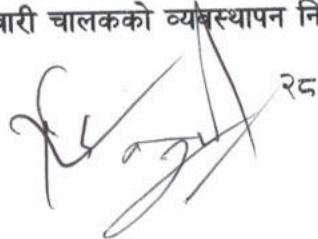 बारी चालकको व्यवस्थापन नि
२८